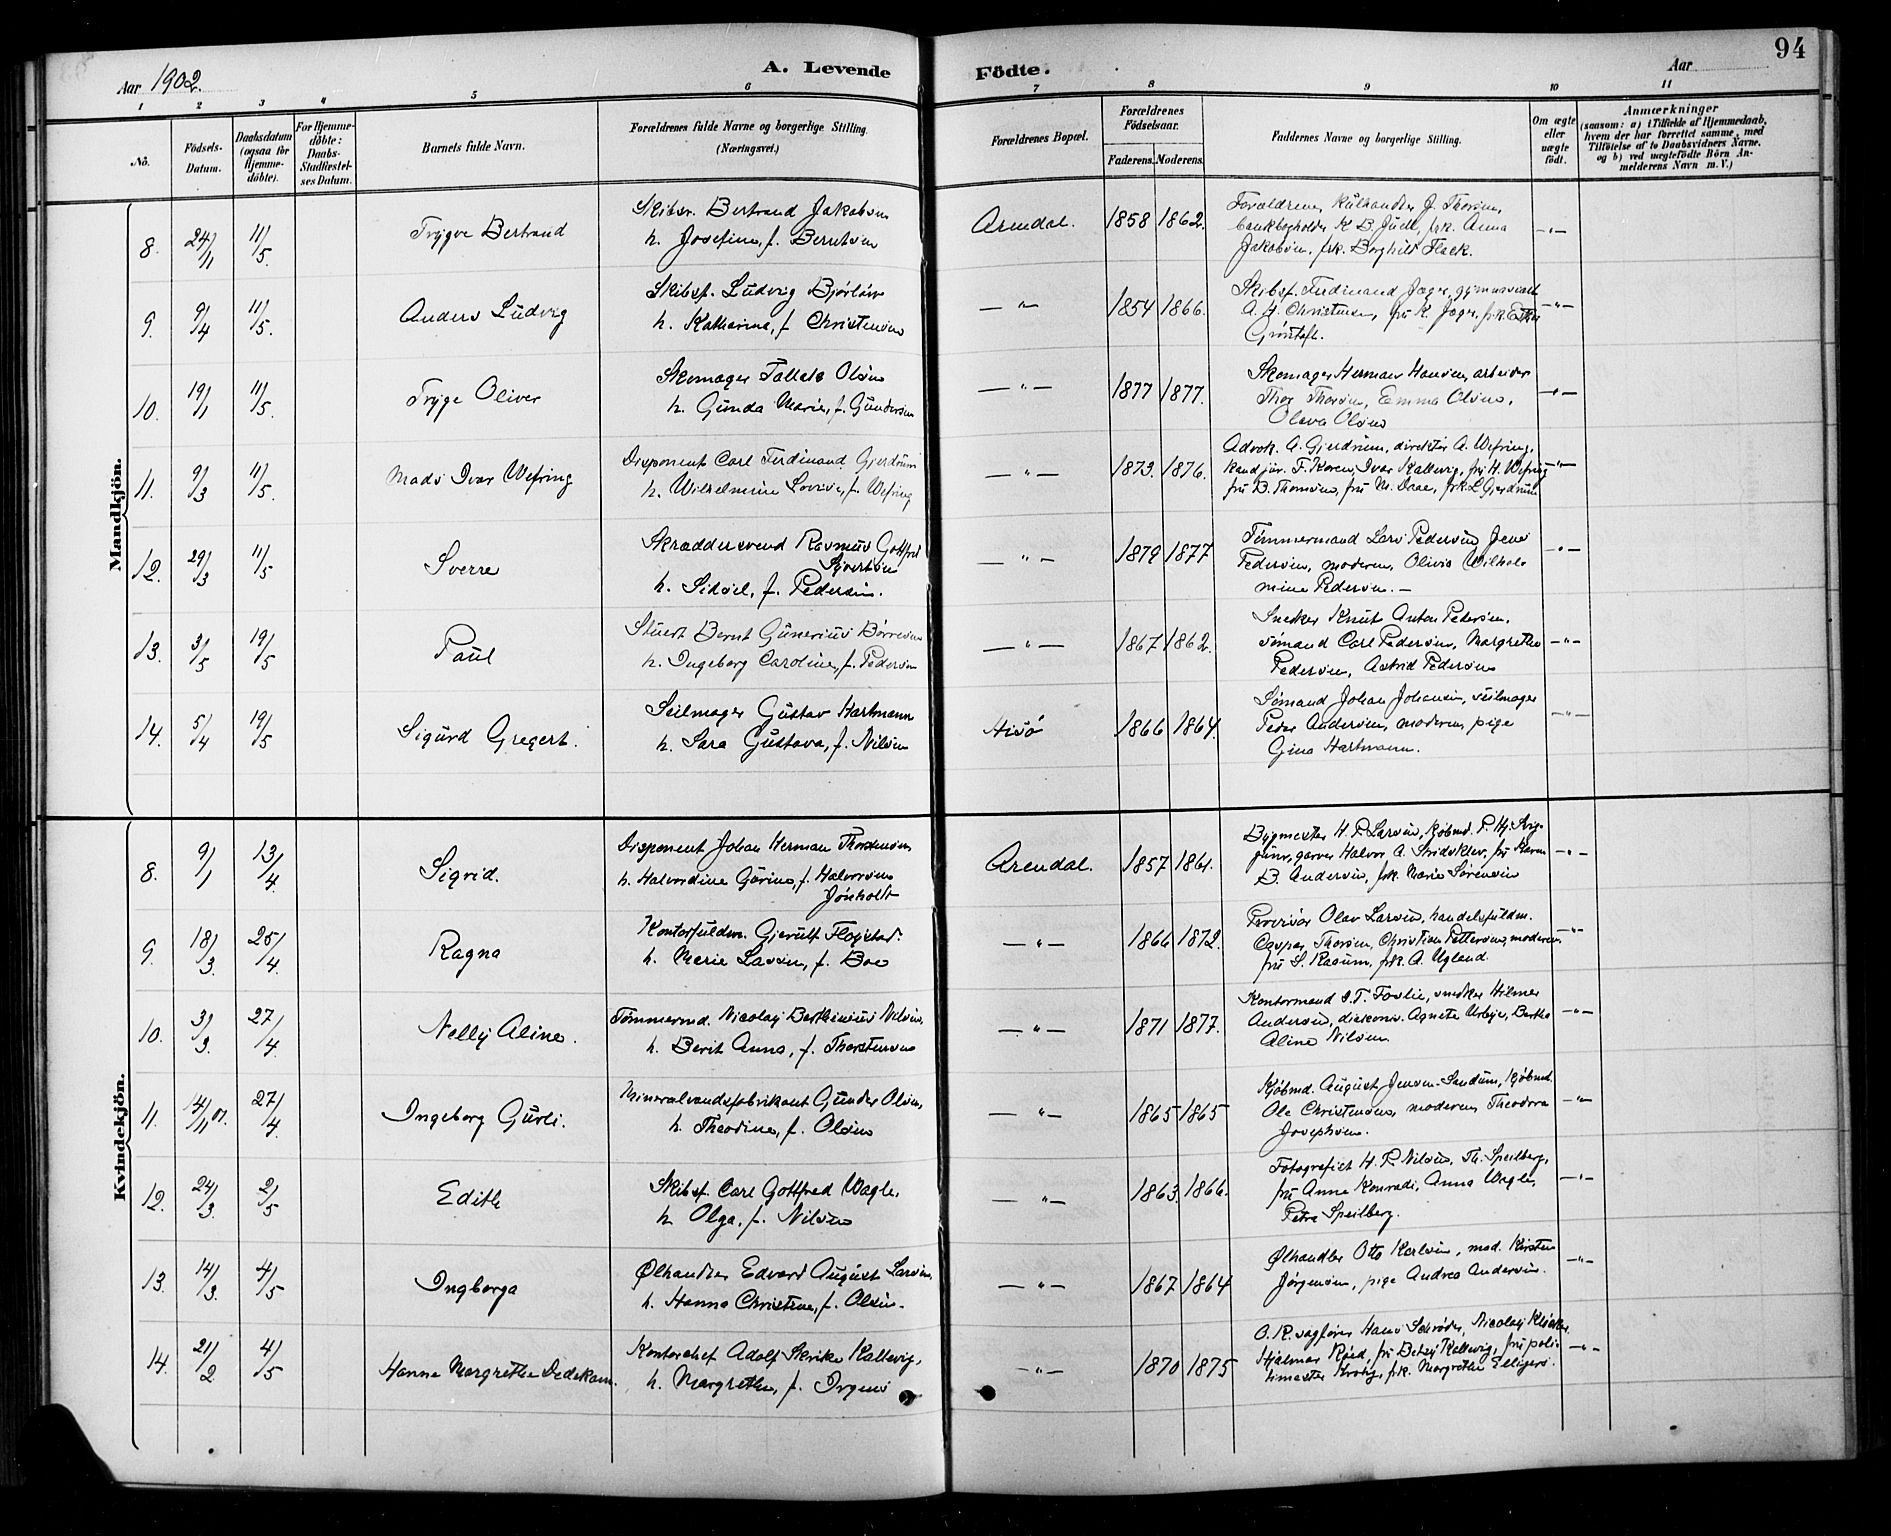 94
Aar 1902.
A. Levende Födte.
Aar
1 2 3 4 5 6 7 8 9 10 11
No.
Födsels-Datum.
Daabsdatum (ogsaa for Hjemme-döbte).
For Hjemme-döbte: Daabs-Stadfæstel-ses Datum.
Barnets fulde Navn.
Forældrenes fulde Navne og borgerlige Stilling. (Næringsvei.)
Forældrenes Bopæl.
Forældrenes Födselsaar.
Faderens. Moderens.
Faddernes Navne og borgerlige Stilling.
Om ægte eller uægte födt.
Anmærkninger
(saasom: a) i Tilfælde af Hjemmedaab,
hvem der har forrettet samme, med
Tilföielse af to Daabsvidners Navne.
og b) ved uægtefödte Börn An-
melderens Navn m. V.)
Mandkjön.
8. 24/11 11/5. Trygve Bertrand
Skibsr. Bertrand Jakobsen
h. Josefine, f. Berntsen
Arendal. 1858 1862.
Forældrene, Kulhandler J. Thorsen,
bankbogholder K. B. Juell, frk. Anna
Jakobsen, frk. Borghild Flack.
-"-
9. 9/4 11/5. Anders Ludvig
Skibsf. Ludvig Bjørløw
h. Katharina, f. Christensen
-"- 1854 1866.
Skibsf. Ferdinand Jæger, gymnasiast
A. H. Christensen, fru K. Jæger, frk. Esther
Grøntoft.
-"-
10. 19/1 11/5. Tryge Oliver
Skomager Tallak Olsen
h. Gunda Marie, f. Gundersen
-"- 1877 1877.
Skomager Herman Hansen, arbeider
Thor Thorsen, Emma Olsen,
Olava Olsen
-"-
11. 9/3 11/5. Mads Ivar Wefring
Disponent Carl Ferdinand Gjerdrum
h. Wilhelmine Lovise, f. Wefring
-"- 1873. 1876.
Advok. A. Gjerdrum, direktør A. Wefring,
kand jur. F. Koren, Ivar Kallevig, fru H. Wefring
fru B. Thomsen, fru M. Daae, frk. L. Gjerdrum
-"-
12. 29/3 11/5 Sverre
Skræddersvend Rasmus Gottfred
Syvertsen
h. Sidsel, f. Pedersen.
-"- 1879 1877
Tømmermand Lars Pedersen, Jens
Pedersen, moderen, Olivia Wilhel
mine Pedersen. -
-"-
13. 3/5 19/5 Paul
Stuert Bernt Gunerius Børresen
h. Ingeborg Caroline, f. Pedersen
-"- 1867 1862.
Snedker Knut Anton Petersen,
sømand Carl Pedersen, Margrethe
Pedersen, Astrid Pedersen
-"-
14. 5/4 19/5 Sigurd Gregert.
Seilmager Gustav Hartmann
h. Sara Gustava, f. Nilsen
Hisø 1866 1864.
Sømand Johan Johansen, seilmager
Peder Andersen, moderen, pige
Gina Hartmann.
-"-
Kvindekjön.
8. 9/1 13/4 Sigrid.
Disponent Johan Herman Thorstensen
h. Halvordine Gurine, f. Halvorsen
Jønholt
Arendal. 1857 1861.
Bygmester H. P. Larsen, kjøbmd. P. Hj.
garver Halvor A. Stridsklev, fru Karen
B. Andersen, frk. Marie Sørensen
-"-
9. 18/3. 25/4. Ragna
Kontorfuldm. Gjerulf Flogstad
h. Marie Lavin, f. Boe
-"- 1866 1872.
Provisor Olav Larsen, handelsfuldm.
Caspar Thorsen, Christian Pettersen, moderen
fru S. Raaum, frk. A. Ugland.
-"-
10. 3/3. 27/4. Nelly Aline.
Tømmermd. Nicolay Berthinius Nilsen,
h. Berit Anna, f. Thorstensen
-"- 1871 1877.
Kontormand J. T. Foslie, snedker Hilmer
Andersen, diakonis. Agnete Urbye, Berthe
Aline Nilsen
-"-
11. 14/11 01. 27/4. Ingeborg Gurli.
Mineralvandsfabrikant Gunder Olsen,
h. Theodine, f. Olsen
-"- 1865 1865
Kjøbmd. August Jensen-Sandum, kjøbmd.
Ole Christensen, moderen, Theodora
Josephsen.
-"-
12. 24/3. 2/5 Edith
Skibsf. Carl Gottfred Wagle,
h. Olga, f. Nilsen
-"- 1863. 1866.
Fotografist H. P. Nilsen, Th. Speilberg,
fru Anne Konradi, Anna Wagle,
Petra Speilberg.
-"-
13. 14/3. 4/5 Ingborga
Ølhandler Edvard August Larsen,
h. Hanna Christine, f. Olsen.
-"- 1867 1864
Ølhandler Otto Karlsen, mad. Kirsten
Jørgensen, pige Andrea Andersen.
-"-
14. 21/2 4/5 Hanne Margrethe Dedekam.
Kontorchef Adolf Skrike Kallevig,
h. Margrethe, f. Irgens
-"- 1870 1875
O. R. sagfører Hans Schrøder, Nicolay Kløcker,
Hjalmar Røed, fru Betzy Kallevig, fru poli-
timester Krohg, frk. Margrethe Elligers.
-"-